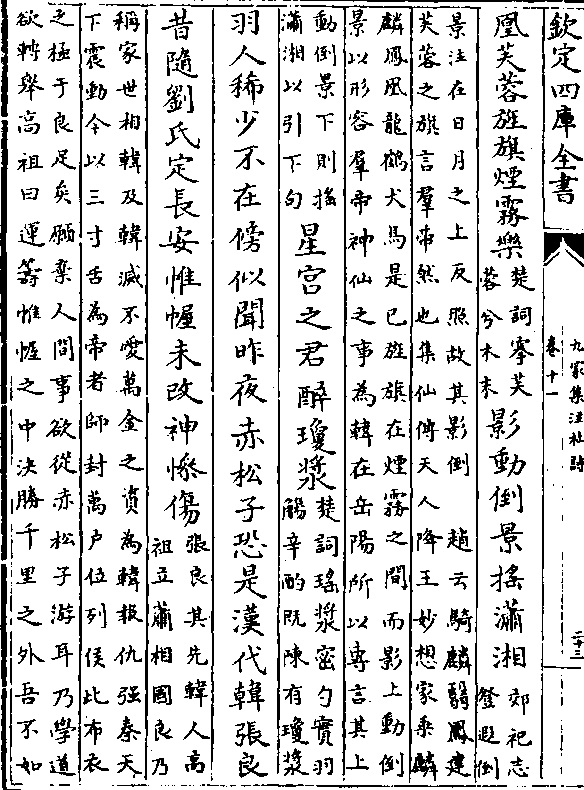 欽定四庫全書
九家集注杜詩
卷十一
二十三
凰芙蓉旌旗煙霧樂楚詞搴芙蓉兮木末影動倒景搖瀟湘郊祀志登遐倒
景注在日月之上反照故其影倒 趙云騎麟翳鳳建
芙蓉之旗言羣帝然也集仙傳天人降王妙想家乘麟
麟鳳凰龍鶴犬馬是已旌旗在煙霧之間而影上動倒
景以形容羣帝神仙之事為韓在岳陽所以專言其上
動倒景下則搖瀟湘以引下句星宮之君醉瓊漿楚詞瑤漿密勺實羽觴辛酌既陳有瓊漿
羽人稀少不在傍似聞昨夜赤松子恐是漢代韓張良
昔隨劉氏定長安惟幄未改神慘傷張良其先韓人高祖立蕭相國良乃
稱家世相韓及韓滅不愛萬金之資為韓報仇强秦天
下震動今以三寸舌為帝者師封萬戶位列侯此布衣
之極于良足矣願棄人間事欲從赤松子游耳乃學道
欲轉舉高祖曰運籌惟幄之中決勝千里之外吾不如